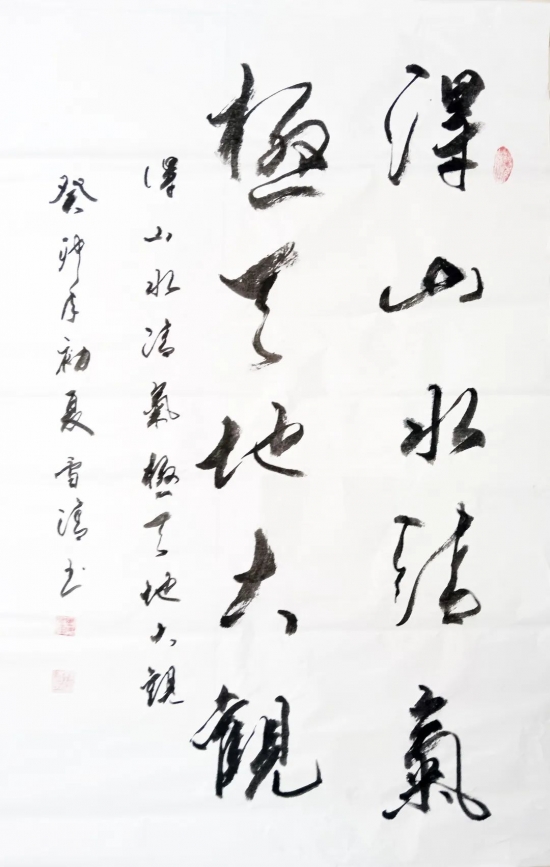 得山水清氣
極天地大觀
得山水清氣極天地大觀
癸卯年初夏雪濤书